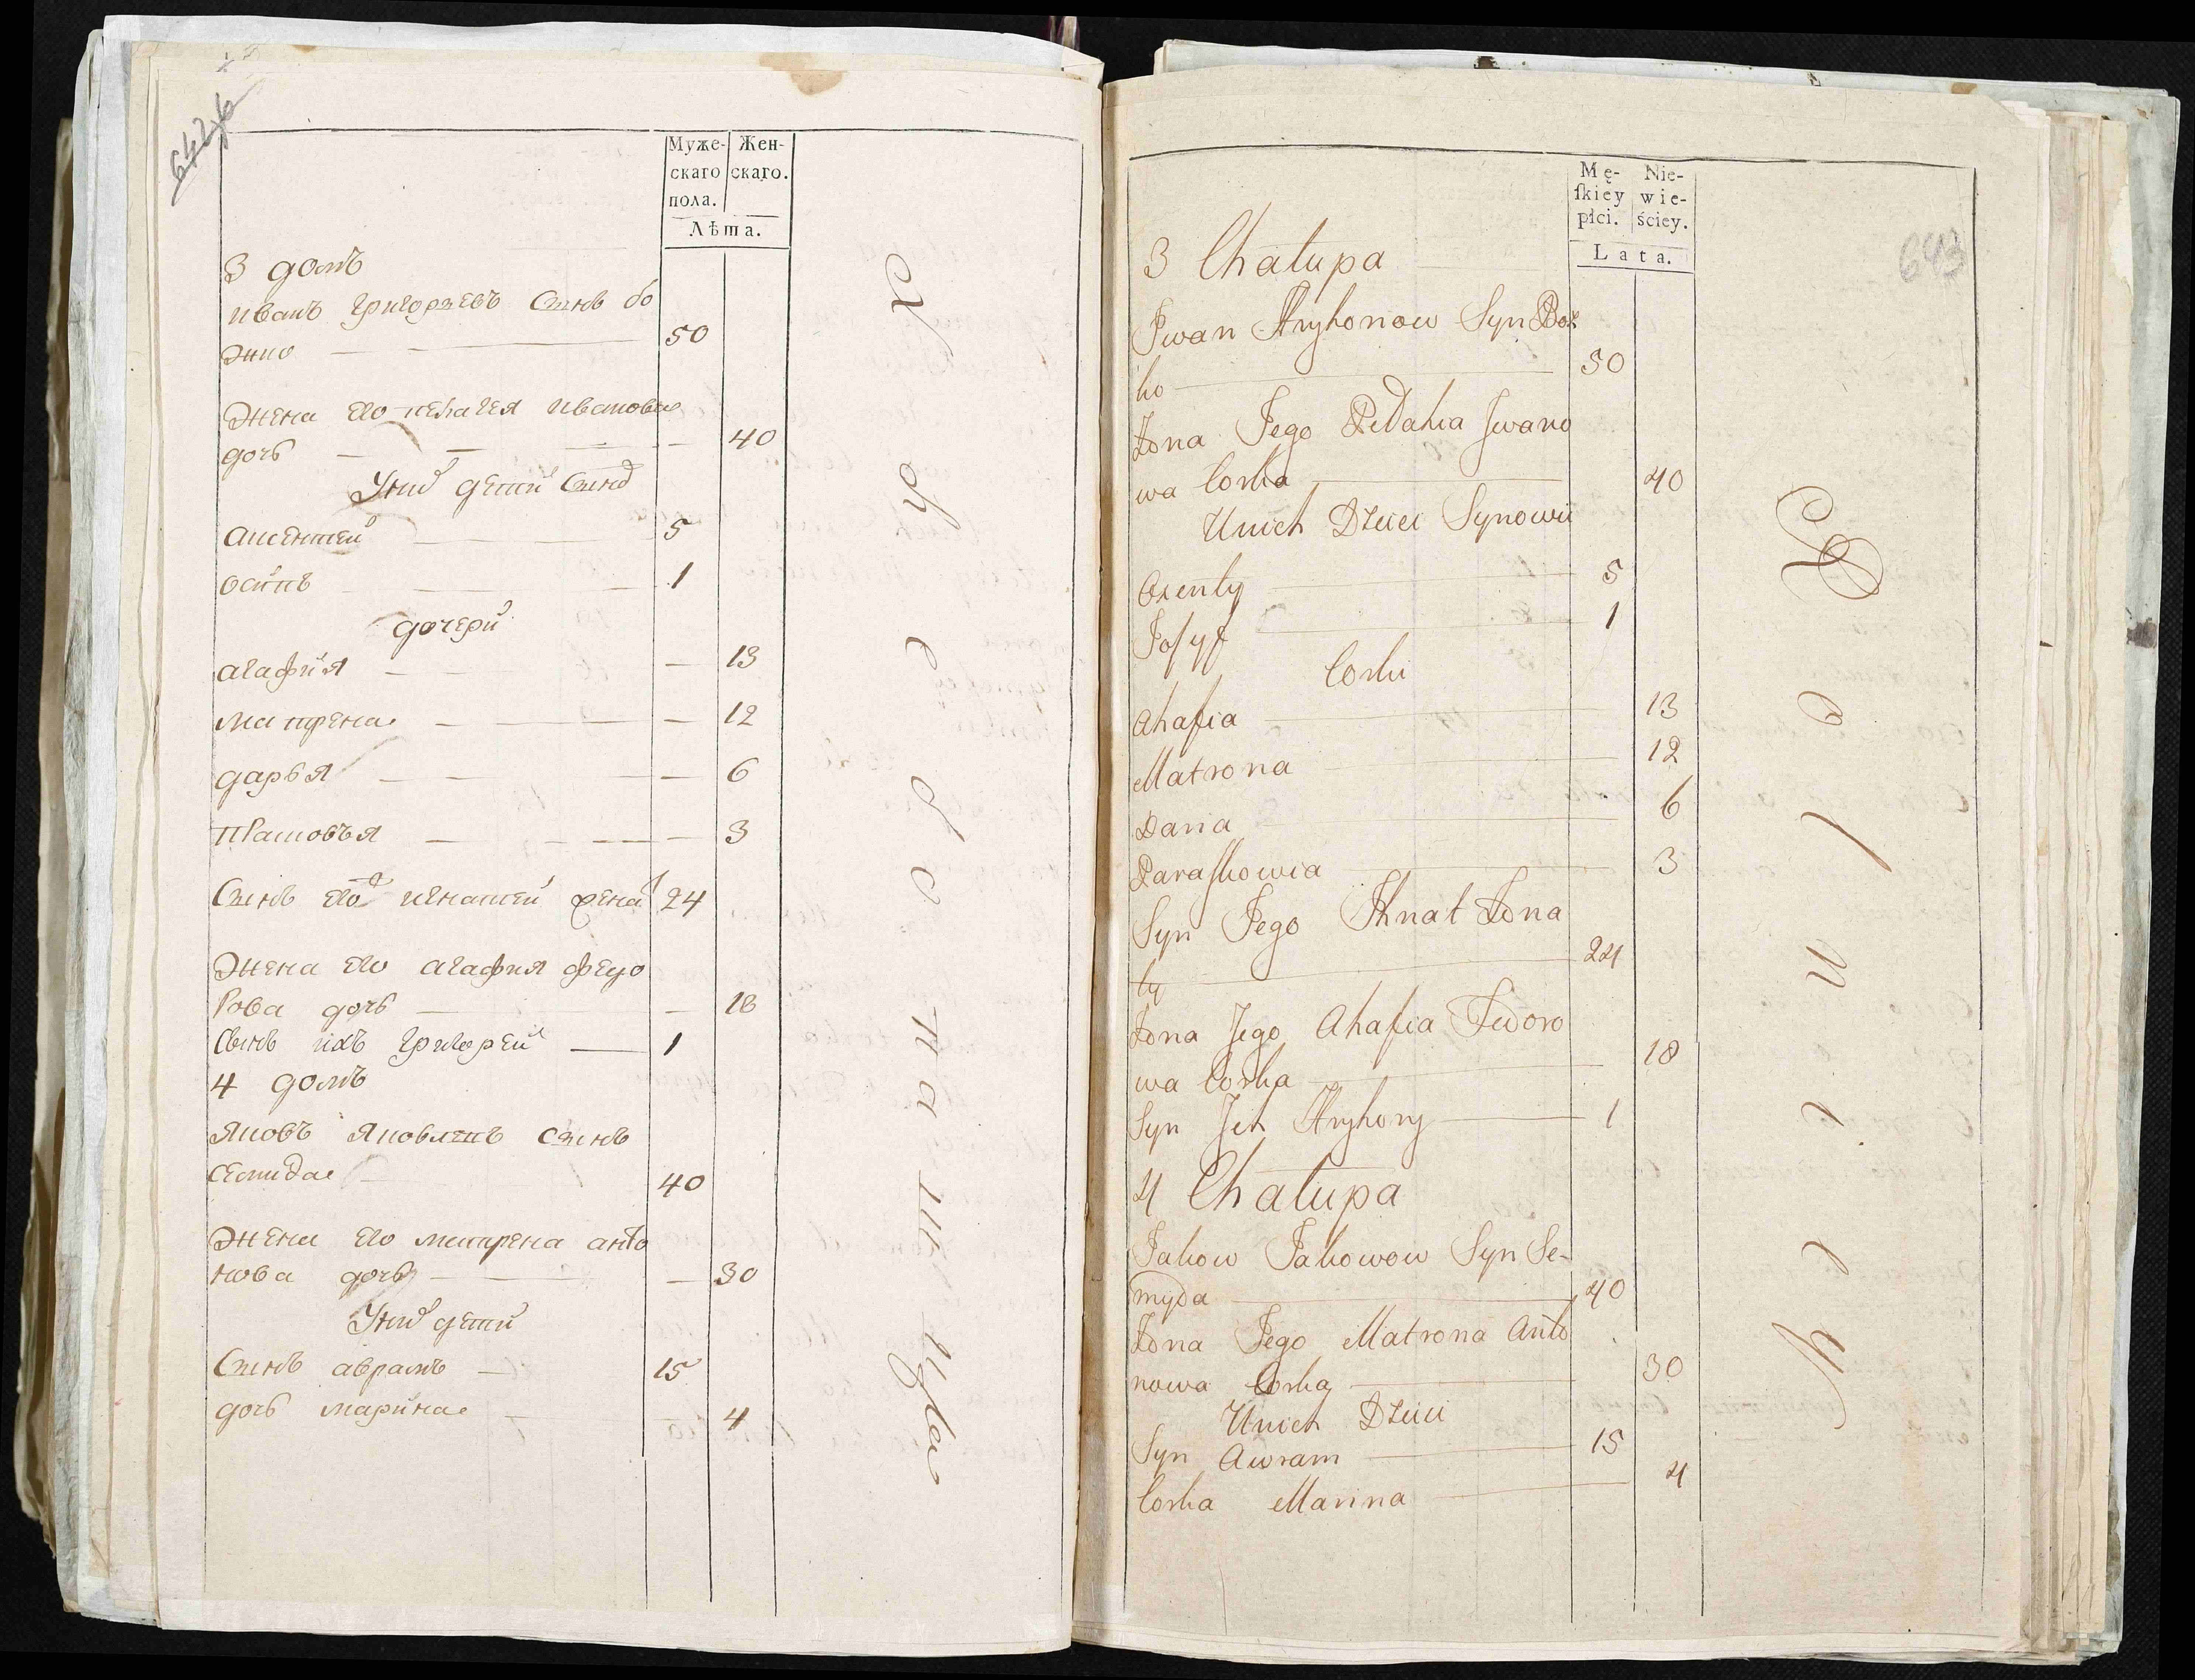 Муже-
скаго
пола.
Жен-
скаго.
Лѣта.
3 домъ
иванъ григорьевъ сынъ бо
жко 50
жена его пелагея иванова
дочь 40
У них дети сынов
аксентей 5
осипъ 1
дочери
агафия 13
матрена 12
дарья 6
прасковья 3
Сынъ его игнатей женат 24
жена его агафия федо
рова дочь 18
Сынъ ихъ григорей 1
4 домъ
яковъ яковлевъ сынъ
семида 40
жена его матрена анто
нова дочь 30
У них дети
Сынъ аврамъ 15
дочь марина 4
643
Mę-
ſkiey
płci.
Nie-
wie-
ściey.
Lata.
3 Chałupa
Jwan Hryhorow Syn Boż
ko 50
Żona Jego Pełahia Jwano
wa Corka 40
Unich Dzieci Synowii
Oxenty 5
Joſyf 1
Corki
Ahafia 13
Matrona 12
Daria 6
Paraſkowia 3
Syn Jego Jhnat Żona
ty 24
Żona Jego Ahafia Fedoro
wa Corka 18
Syn Jch Hryhory 1
4 Chałupa
Jakow Jakowow Syn Se-
myda 40
Żona Jego Matrona Anto
nowa Corka 30
Unich Dzieci
Syn Awram 15
Corka Marina 4